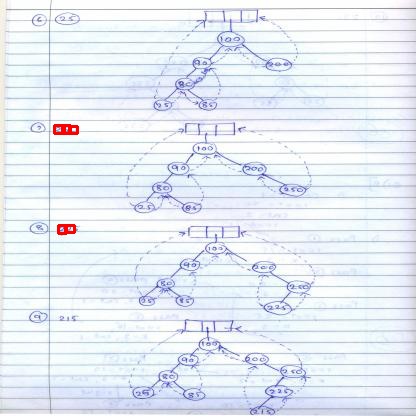 6 25
100
90 200
80
25 85
7
100
90 200
80 250
25 85
8
100
90 200
80 250
25 85 225
9 215
100
90 200
80 250
25 85 225
215